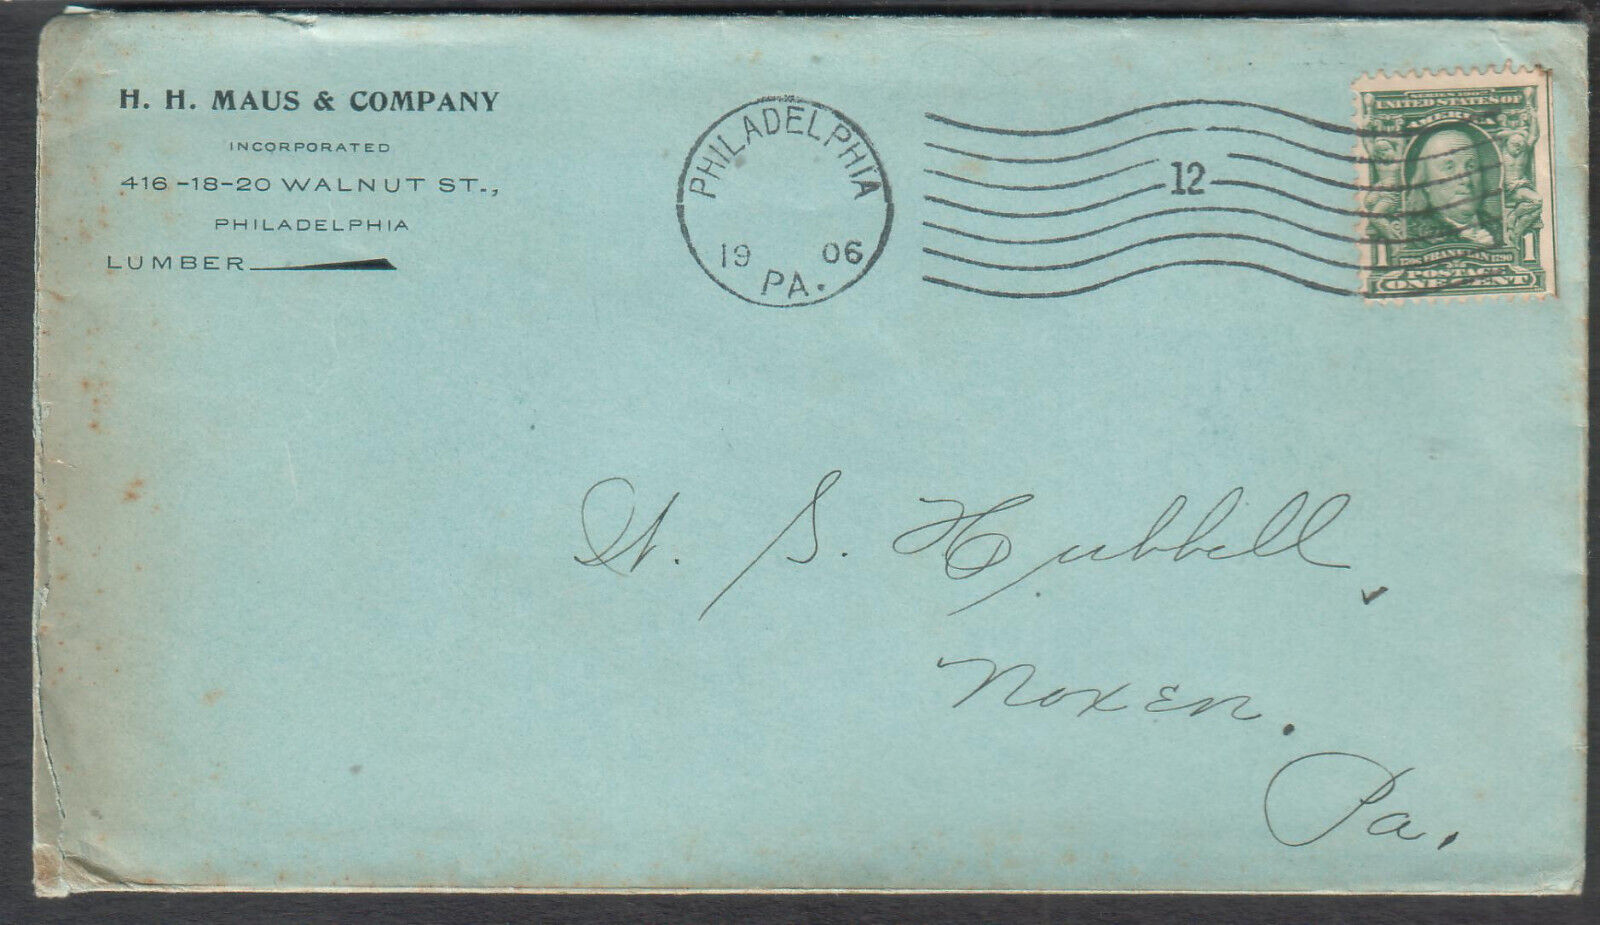 H. H. MAUS & COMPANY
INCORPORATED
416-18-20 WALNUT ST.,
PHILADELPHIA
LUMBER
PHILADELPHIA
19 06
PA.
12
SERIES 1902
UNITED STATES OF
AMERICA
1 1706 FRANKLIN 1790 1
POSTAGE
ONE CENT
H. S. Hubbell,
Noxen.
Pa.